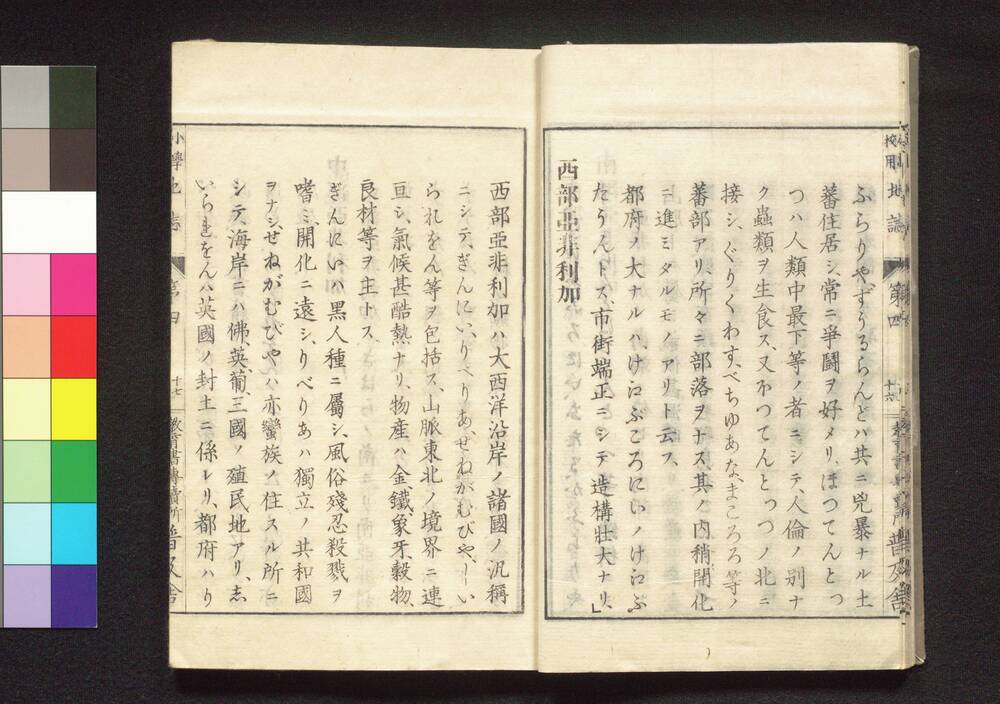 ふらりやずうるらんどハ共ニ兇暴ナル土
蕃住居シ、常ニ爭鬪ヲ好メリ、ほつてんとつ
つハ人類中最下等ノ者ニシテ、人倫ノ別ナ
ク蟲類ヲ生食ス、又ホつてんとつつノ北ニ
接シ、ぐりくわす、べちゆあな、まころろ等ノ
蕃部アリ、所々ニ部落ヲナス、其ノ内稍開化
ニ進ミタルモノアリト云フ、
都府ノ大ナルハ、けゐぷころにいノけゐぷ
たうんトス、市街端正ニシテ造構壯大ナリ、
西部亞非利加
西部亞非利加ハ大西洋沿岸ノ諸國ノ汎稱
ニシテ、ぎんにい、りべりあ、せねがむびや、しい
られをん等ヲ包括ス、山脈東北ノ境界ニ連
亘シ、氣候甚酷熱ナリ、物産ハ金、鐵、象牙、穀物、
良材等ヲ主トス、
ぎんにいハ黑人種ニ屬シ、風俗殘忍殺戮ヲ
嗜ミ、開化ニ遠シ、りべりあハ獨立ノ共和國
ヲナシ、せねがむびやハ亦蠻族ノ住スル所ニ
シテ、海岸ニハ佛、英、葡、三國ノ殖民地アリ、志
いられをんハ英國ノ封土ニ係レリ、都府ハり
小學地誌 第四 十七 教育書專賣所 普及舍